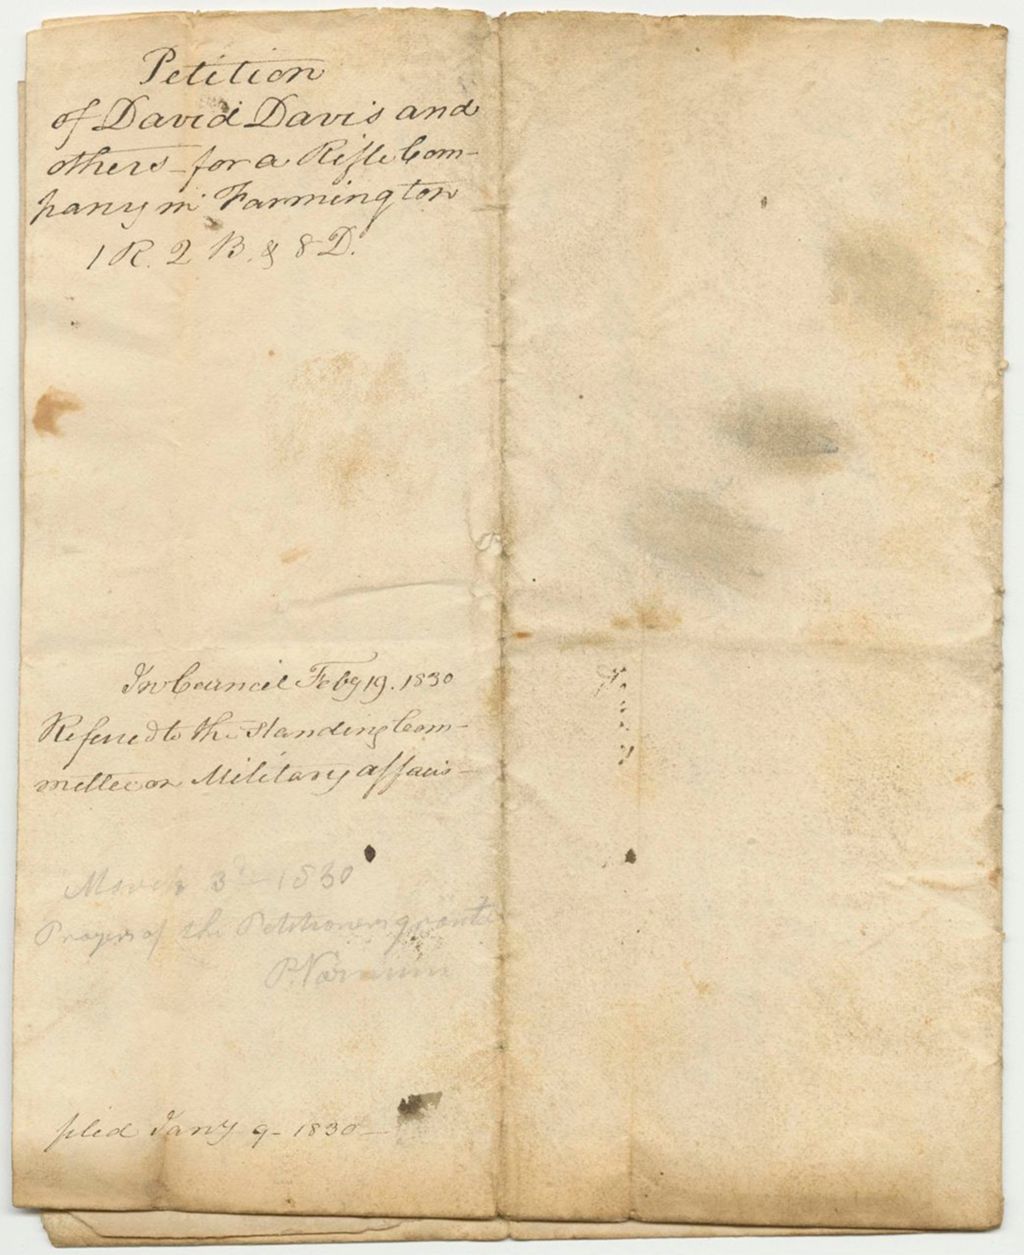 Petition
of David Davis and
others - for a Rifle Com-
pany in Farmington
1 R. 2 B. & 8 D.
In Council Feby 19. 1830
Referred to the standing Com-
mittee on Military affairs -
March 3d - 1830
Prayer of the Petitioners granted
P. Varnum
filed Jany 9 - 1830 -